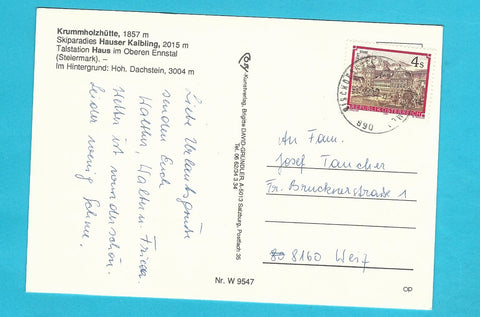 Krummholzhütte, 1857 m
Skiparadies Hauser Kaibling, 2015 m
Talstation Haus im Oberen Ennstal
(Steiermark). –
Im Hintergrund: Hoh. Dachstein, 3004 m
Liebe Urlaubsgrüße
senden Euch
Walther, Walter u. Frieda.
Wetter ist wunderschön.
Leider wenig Schnee.
-Kunstverlag, Brigitte DAVID-GRÜNDLER, A-5013 Salzburg, Postfach 35
Tel. 06 62/34 3 34
Nr. W 9547
4 S
REPUBLIK ÖSTERREICH
An Fam.
Josef Taucher
Fr. Brucknerstraße 1
8160 Weiz
OP